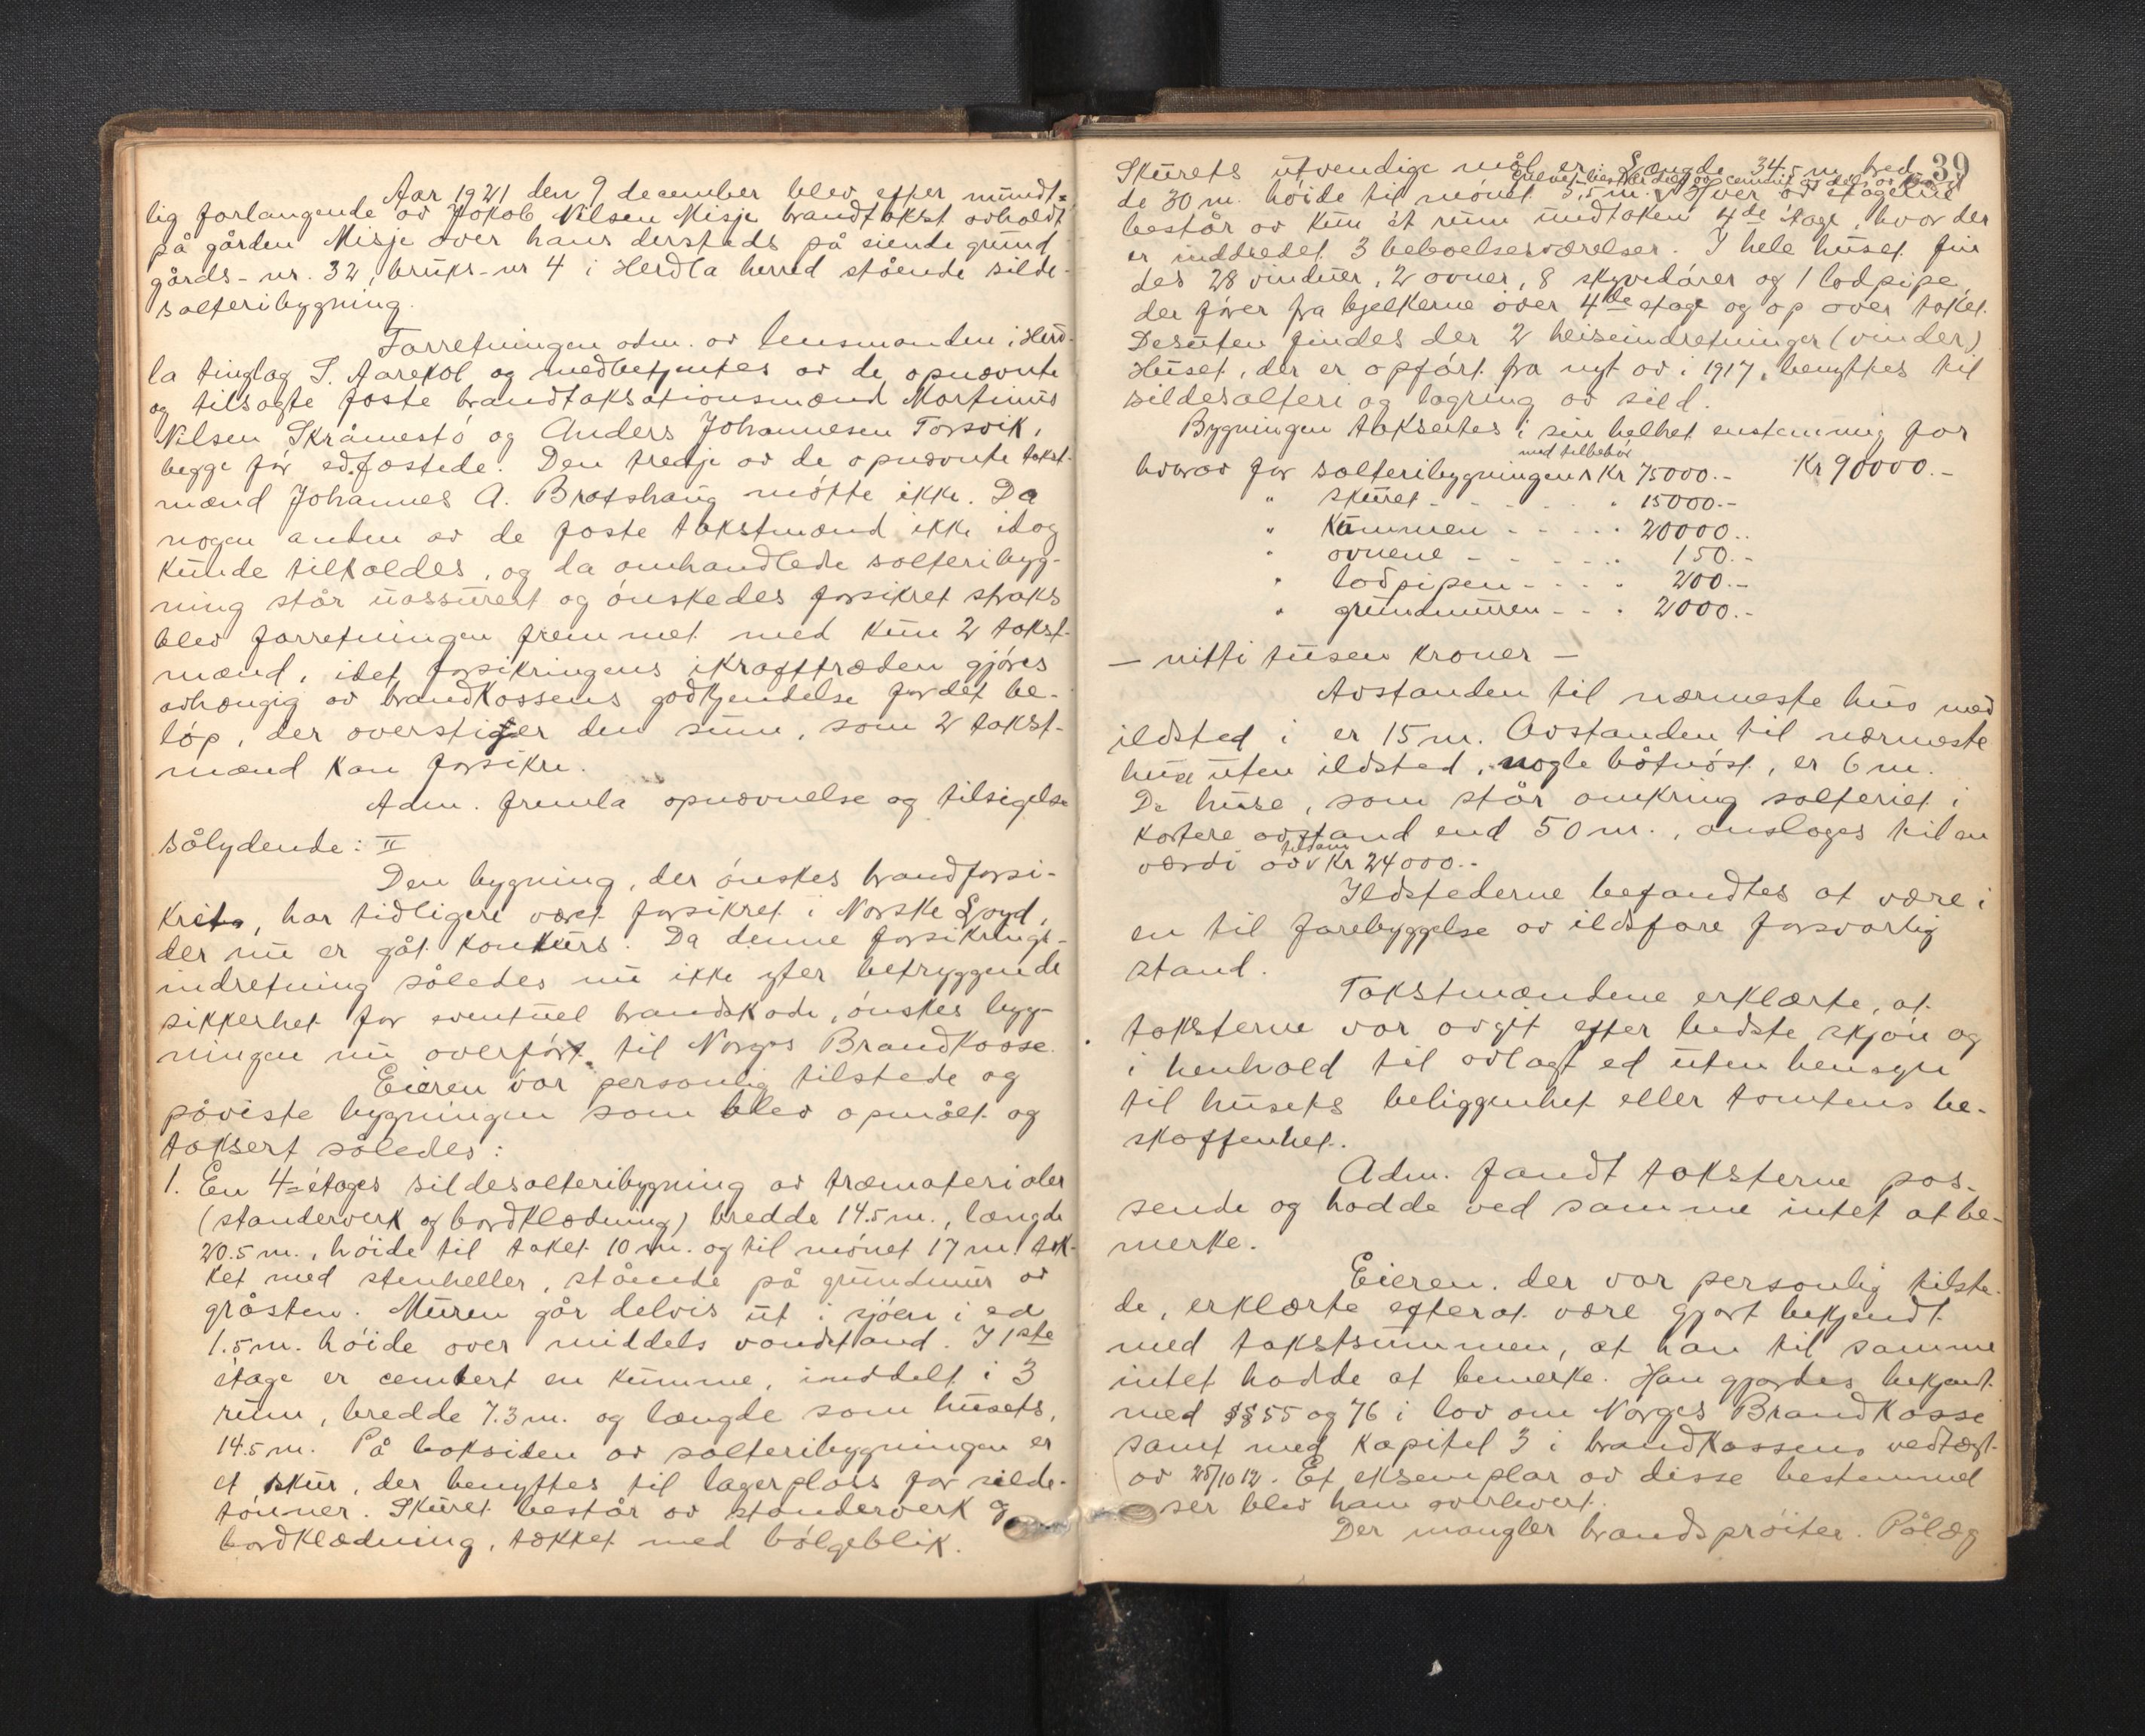 Aar 1921 den 9 december blev efter mundt-
lig forlangende av Jakob Nilsen Misje brandtakst avholdt
på gården Misje over hans dersteds på eiende grund
gårds-nr. 32, bruks-nr 4 i Herdla herred stående silde-
salteribygning.
Forretningen adm. av lensmanden i Herd-
la tinglag S. Aarekol og medbetjentes av de opnævnte
og tilsagte faste brandtaksationsmænd Martinus
Nilsen Skråmestø og Anders Johannesen Torsvik,
begge før edfæstede. Den tredje av de opnævnte takst-
mænd Johannes A. Bratshaug møtte ikke. Da
nogen anden av de faste takstmænd ikke idag
kunde tilkaldes, og da omhandlede salteribyg-
ning står uassurert og ønskedes forsikret straks
blev forretningen fremmet med kun 2 takst-
mænd, idet forsikringens ikrafttræden gjøres
avhængig av brandkassens godkjendelse for det be-
løp, der overstiger den sum, som 2 takst-
mænd kan forsikre.
Adm. fremla opnævnelse og tilsigelse
sålydende: II
Den bygning, der ønskes brandforsi-
kret, har tidligere været forsikret i Norske Loyd,
der nu er gåt konkurs. Da denne forsikrings-
indretning således nu ikke yter betryggende
sikkerhet for eventuel brandskade, ønskes byg-
ningen nu overført til Norges Brandkasse.
Eieren var personlig tilstede og
påviste bygningen som blev opmålt og
taksert således:
1. En 4-étages sildesalteribygning av træmaterialer
(standerverk og bordklædning) bredde 14.5 m., længde
20.5 m., høide til taket 10 m. og til mønet 17 m. tæk-
ket med stenheller, stående på grundmur av
gråsten. Muren går delvis ut i sjøen i ca
1.5 m. høide over middels vandstand. I 1ste
étage er cementert en kumme, inddelt i 3
rum, bredde 7.3 m. og længde som husets,
14.5 m. På baksiden av salteribygningen er
et skur, der benyttes til lagerplass for silde-
tønner. Skuret består av standerverk og
bordklædning, tækket med bølgeblik.
39
Skurets utvendige mål er: Længde 34.5 m, bred-
de 30 m. høide til mønet 5.5 m. Hver av étagerne
består av kun ét rum undtaken 4de étage, hvor der
er inddredet 3 beboelsesværelser. I hele huset fin
des 28 vinduer, 2 ovner, 8 skyvedører og 1 lodpipe,
der fører fra bjelkerne over 4de étage og op over taket.
Desuten findes der 2 heiseindretninger (vinder)
Huset, der er opført fra nyt av i 1917, benyttes til
sildesalteri og lagring av sild.
Bygningen takseres i sin helhet enstemmig for
med tilbehør
hvorav for salteribygningen Kr 75000.- Kr 90000.-
" skuret - - - - " 15000.-
" kummen - - - - " 20000.-
" ovnene - - - - " 150.-
" lodpipen - - - " 200.-
" grundmuren - - " 2000.-
— nitti tusen kroner —
Avstanden til nærmeste hus med
ildsted i er 15 m. Avstanden til nærmeste
hus uten ildsted, nogle båtnøst, er 6 m.
De huse, som står omkring salteriet i
kortere avstand end 50 m., ansloges til en
værdi av tilsam Kr 24000.-
Ildstederne befandtes at være i
en til forebyggelse av ildsfare forsvarlig
stand.
Takstmændene erklærte, at
taksterne var avgit efter bedste skjøn og
i henhold til avlagt ed uten hensyn
til husets beliggenhet eller tomtens be-
skaffenhet.
Adm. fandt taksterne pas-
sende og hadde ved samme intet at be-
merke.
Eieren, der var personlig tilste-
de, erklærte efter at være gjort bekjendt
med takstsummen, at han til samme
intet hadde at bemerke. Han gjordes bekjent
med §§ 55 og 76 i lov om Norges Brandkasse
samt med kapitel 3 i brandkassens vedtægt
av 25/10 12. Et eksemplar av disse bestemmel
ser blev ham overlevert.
Der mangler brandsprøiter. Pålæg